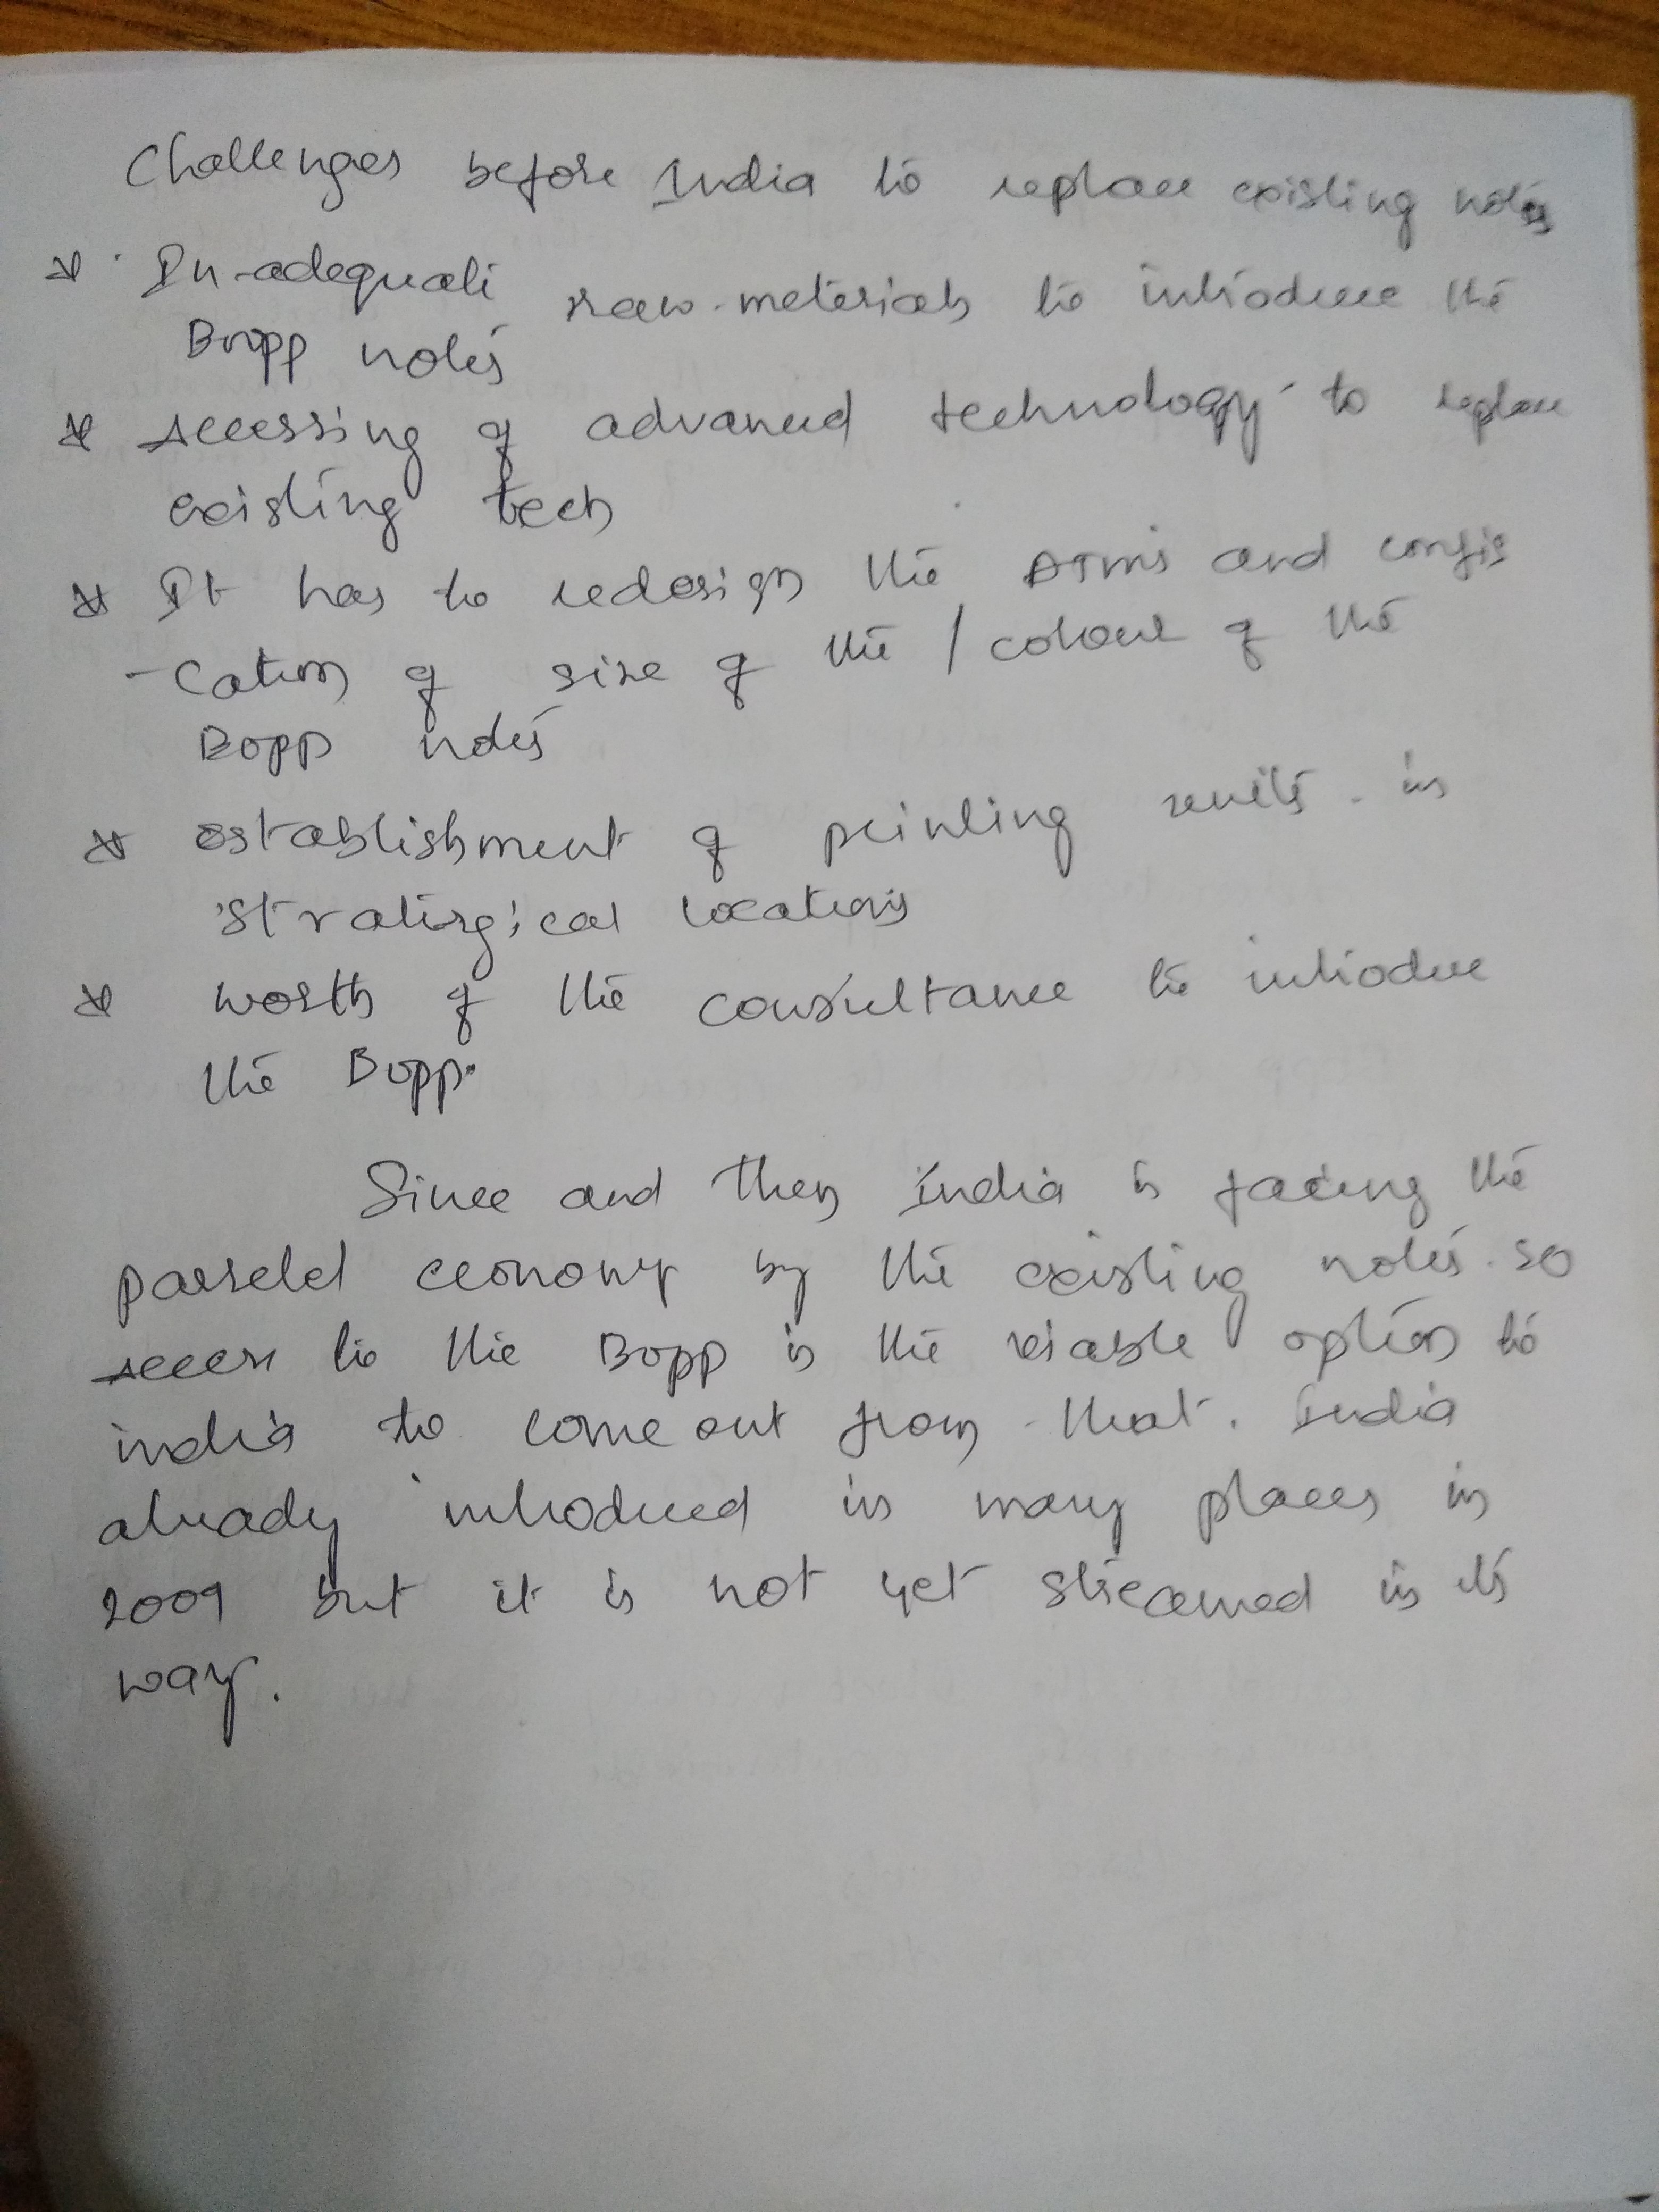 Challenges before India to replace existing notes
* In-adequate raw-meterials to introduce the
Bopp notes
* Accessing of advanced technology to replace
existing tech
* It has to redesign the ATMs and confis
-Cation of size of the / colour of the
Bopp notes
* establishment of printing units in
strategical locations
* worth of the consultance to introduce
the Bopp.
Since and then India is facing the
parrelel economy by the existing notes. so
access to the Bopp is the viable option to
india to come out from that. India
already introduced in many places in
2009 but it is not yet streamed in its
way.